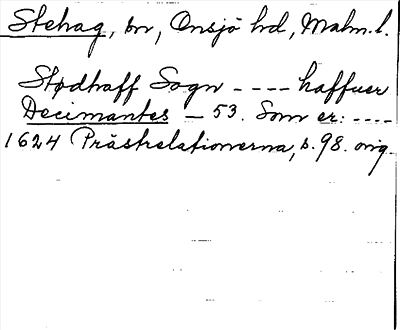 Stehag, sn, Onsjö hd, Malm. l.
Stødhaff Sogn ---- haffuer
Decimantes - 53. Som er: ----
1624 Prästrelationerna, s. 98. orig.